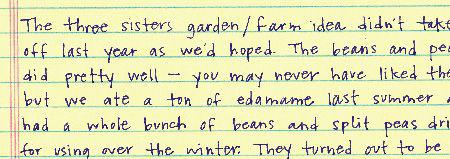 The three sisters garden/farm idea didn't take
off last year as we'd hoped. The beans and pea
did pretty well – you may never have liked the
but we ate a ton of edamame last summer a
had a whole bunch of beans and split peas dri
for using over the winter. They turned out to be